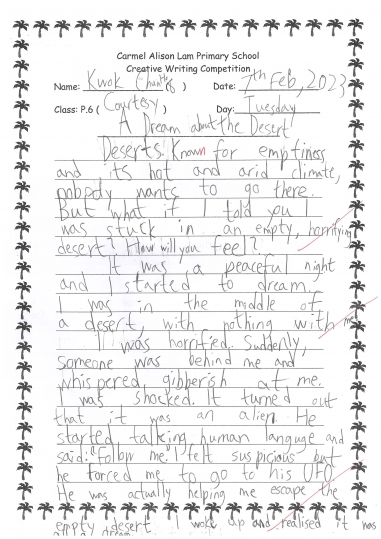 Carmel Alison Lam Primary School
Creative Writing Competition
Name: Kwok ( ) Date: 7th Feb, 2023
Class: P.6 ( Courtesy ) Day: Tuesday
A Dream about the Desert
Deserts. Known for emptiness
and its hot and arid climate,
nobody wants to go there.
But what if I told you I
was stuck in an empty, horrifying
desert? How will you feel?
It was a peaceful night
and I started to dream.
I was in the middle of
a desert, with nothing with me.
I was horrified. Suddenly,
someone was behind me and
whispered gibberish at me.
I was shocked. It turned out
that it was an alien. He
started talking human languge and
said: "Follow me." I felt suspicious but
he forced me to go to his UFO.
He was actually helping me escape the
empty desert. I woke up and realised it was